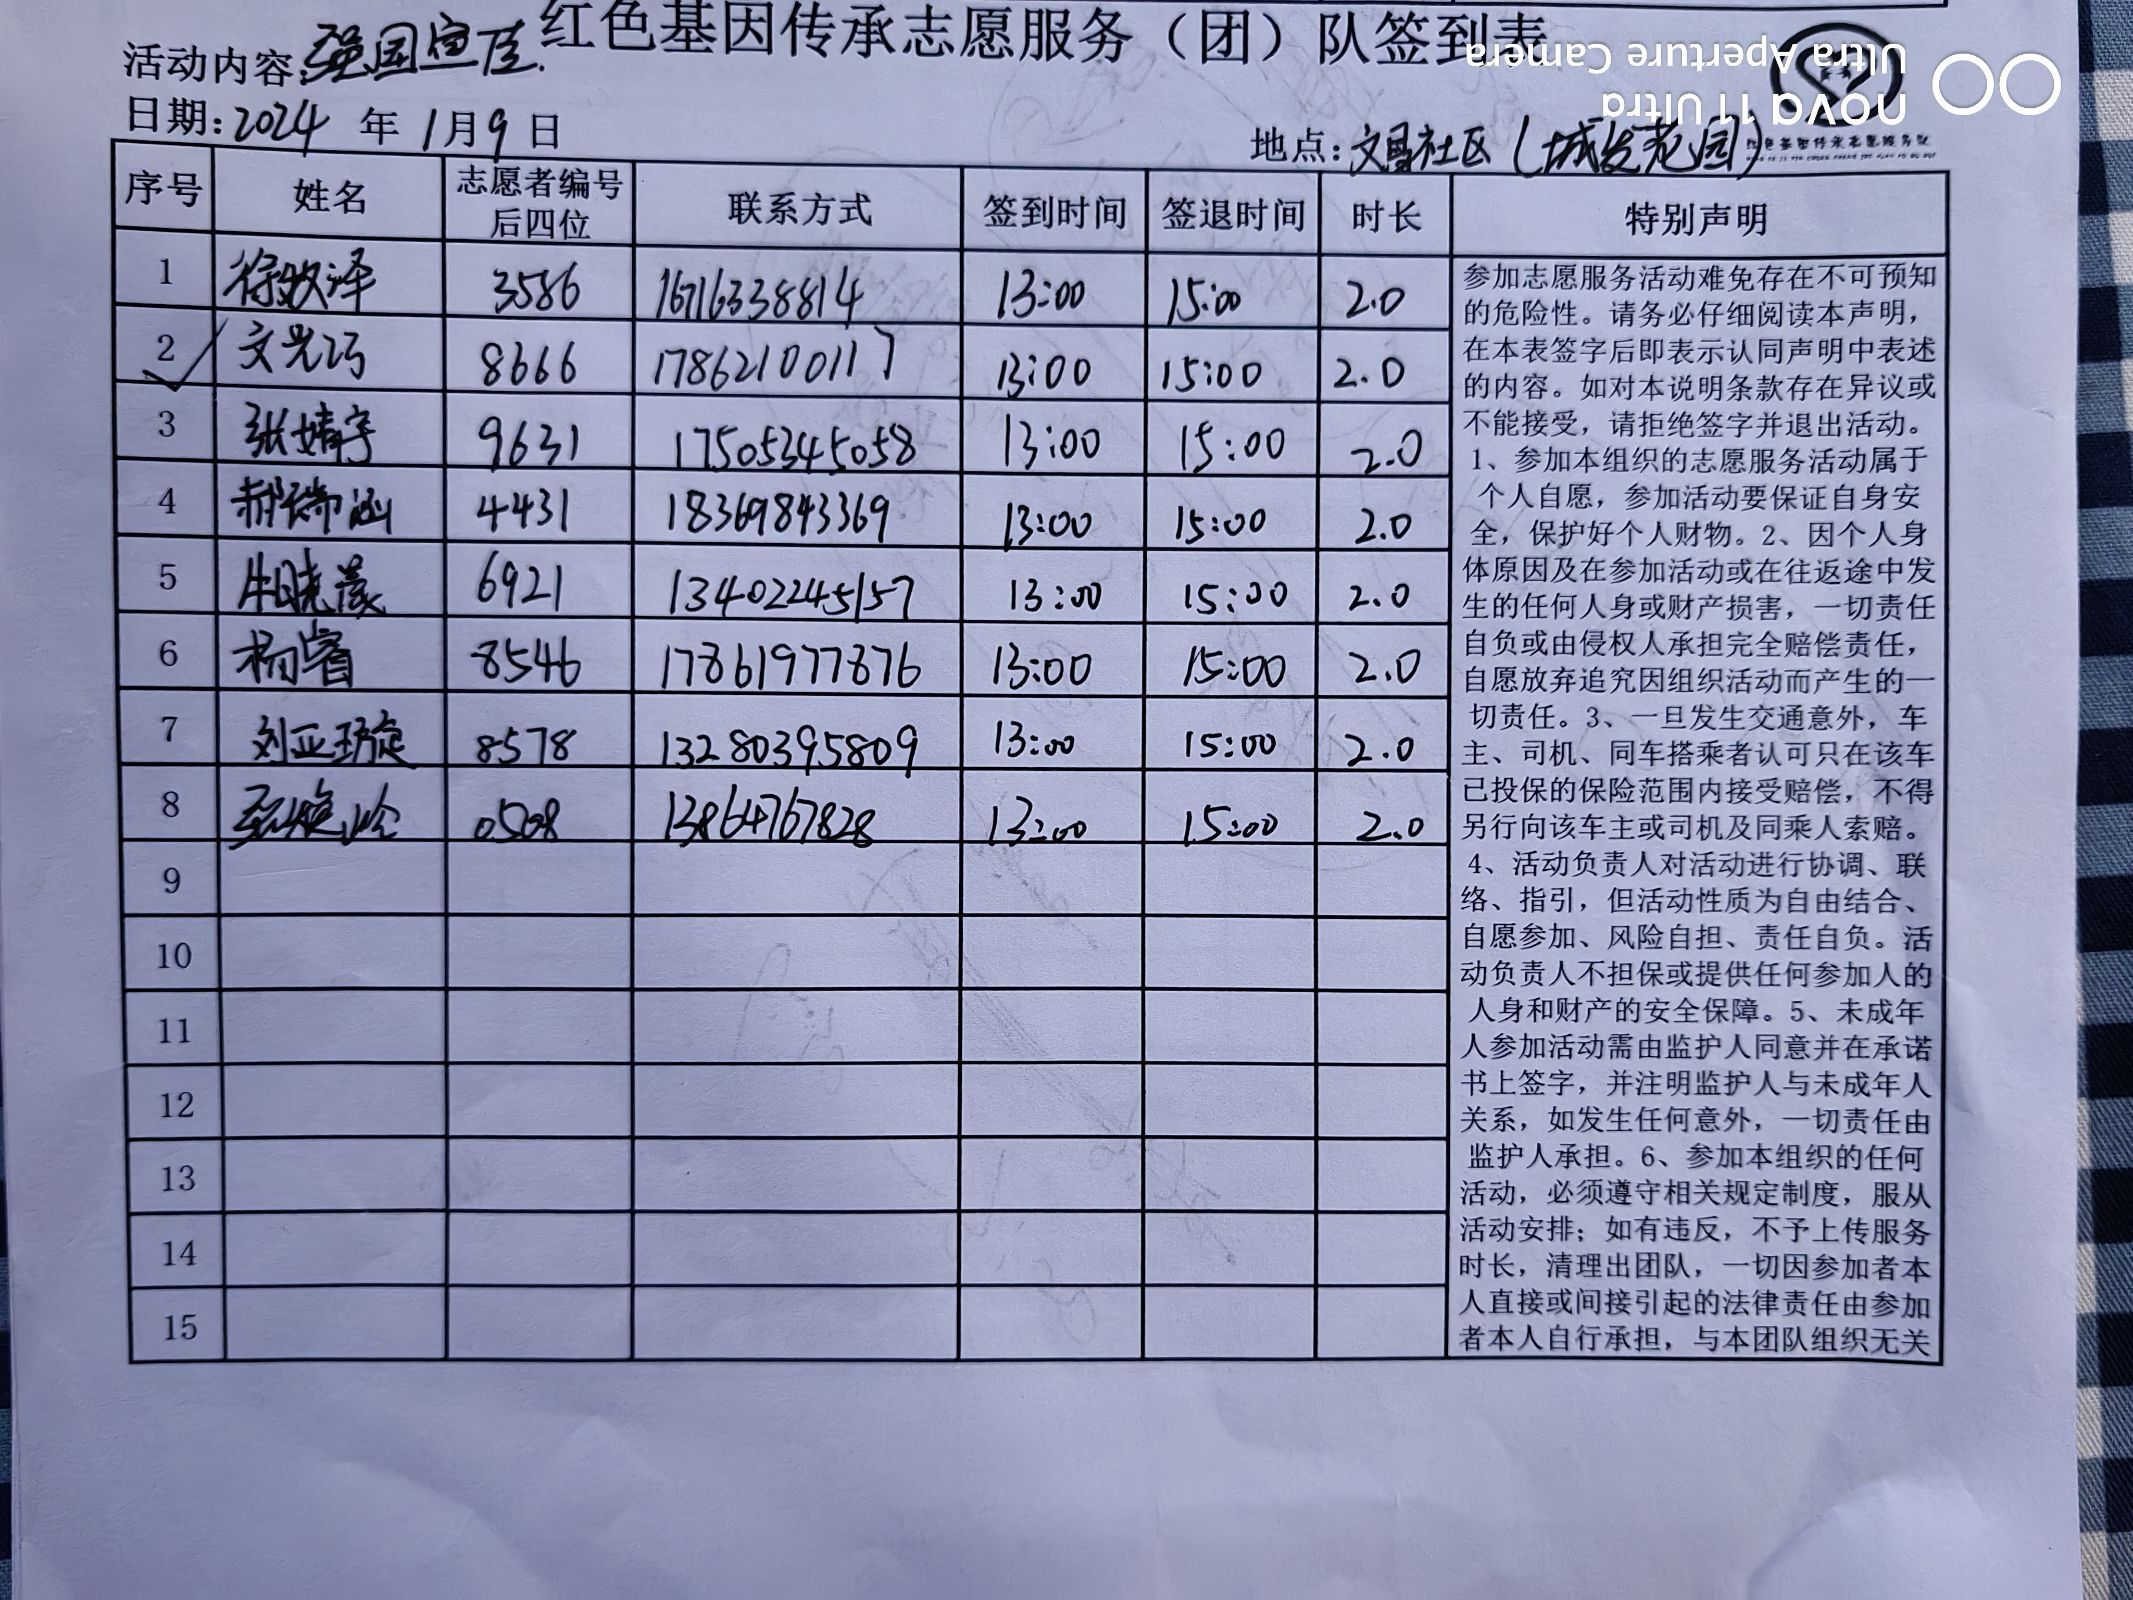 红色基因传承志愿服务（团）队签到表
活动内容:强国宣传.
日期:2024 年 1月9 日
地点:文昌社区(城发花园)
nova 11 Ultra
Ultra Aperture Camera
红色基因传承志愿服务队
序号 姓名 志愿者编号后四位 联系方式 签到时间 签退时间 时长 特别声明
1 徐牧泽 3586 16716338814 13:00 15:00 2.0
2 文兴巧 8666 17862100117 13:00 15:00 2.0
3 张婧宇 9631 17505345058 13:00 15:00 2.0
4 郝瑞涵 4431 18369843369 13:00 15:00 2.0
5 牛晓蒙 6921 13402245157 13:00 15:00 2.0
6 杨睿 8546 17861977876 13:00 15:00 2.0
7 刘亚璇 8578 13280395809 13:00 15:00 2.0
8 0508 13864767828 13:00 15:00 2.0
9
10
11
12
13
14
15
参加志愿服务活动难免存在不可预知
的危险性。请务必仔细阅读本声明，
在本表签字后即表示认同声明中表述
的内容。如对本说明条款存在异议或
不能接受，请拒绝签字并退出活动。
1、参加本组织的志愿服务活动属于
个人自愿，参加活动要保证自身安
全，保护好个人财物。2、因个人身
体原因及在参加活动或在往返途中发
生的任何人身或财产损害，一切责任
自负或由侵权人承担完全赔偿责任，
自愿放弃追究因组织活动而产生的一
切责任。3、一旦发生交通意外，车
主、司机、同车搭乘者认可只在该车
已投保的保险范围内接受赔偿，不得
另行向该车主或司机及同乘人索赔。
4、活动负责人对活动进行协调、联
络、指引，但活动性质为自由结合、
自愿参加、风险自担、责任自负。活
动负责人不担保或提供任何参加人的
人身和财产的安全保障。5、未成年
人参加活动需由监护人同意并在承诺
书上签字，并注明监护人与未成年人
关系，如发生任何意外，一切责任由
监护人承担。6、参加本组织的任何
活动，必须遵守相关规定制度，服从
活动安排；如有违反，不予上传服务
时长，清理出团队，一切因参加者本
人直接或间接引起的法律责任由参加
者本人自行承担，与本团队组织无关